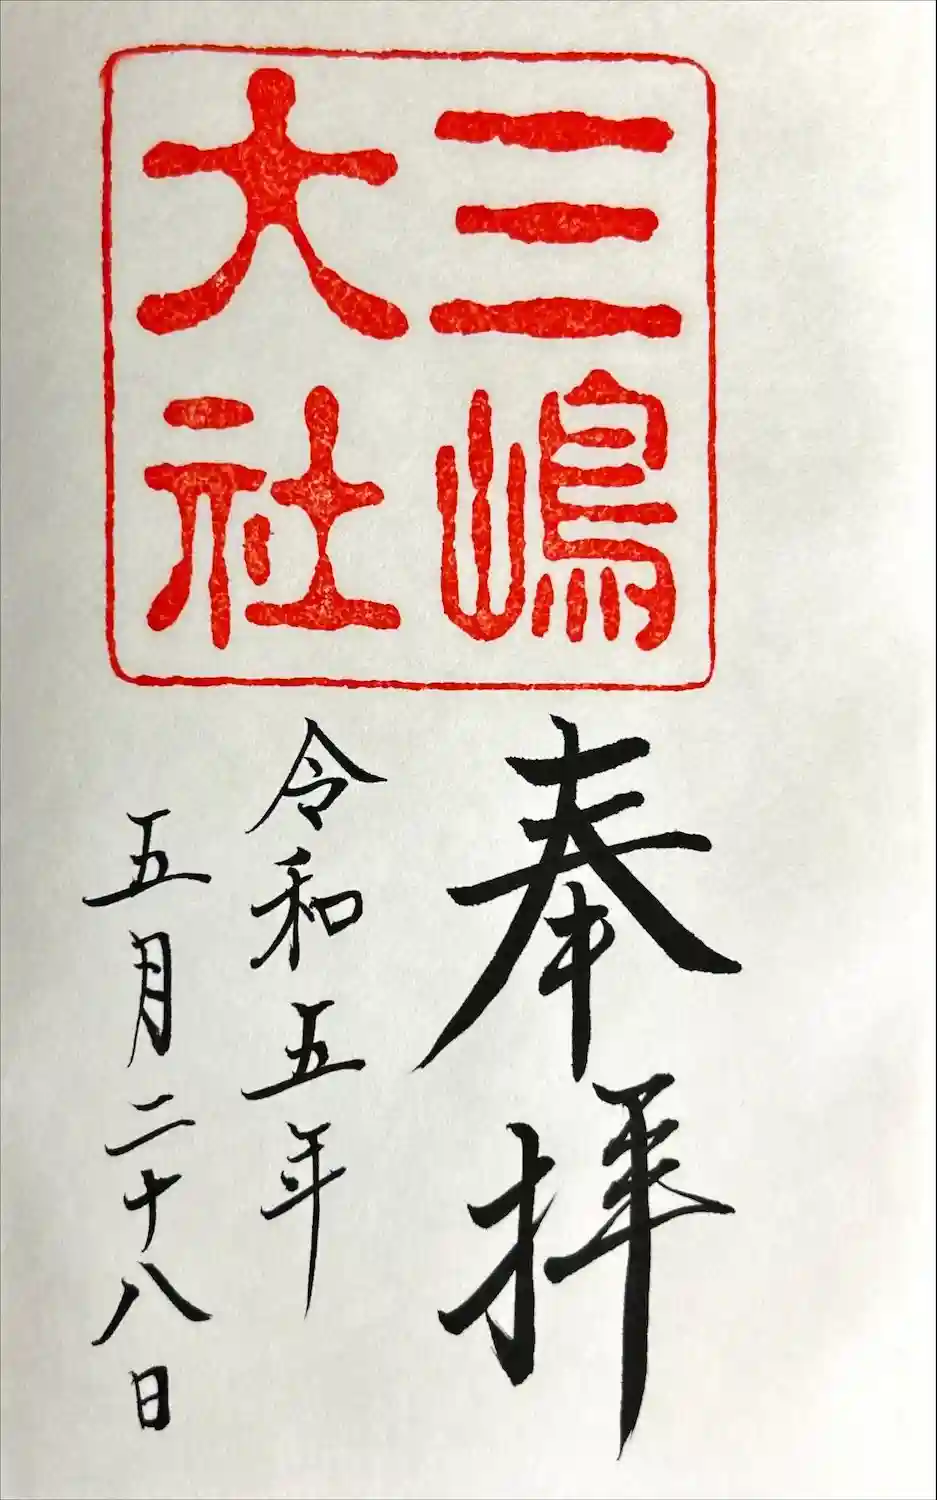 三嶋
大社
奉拝
令和五年
五月二十八日